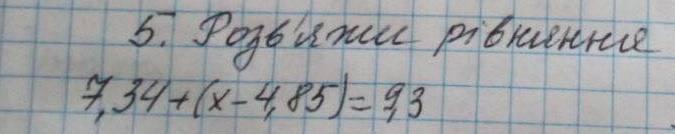 5. Розв'яжи рівняння
7,34+(x-4,85)=9,3